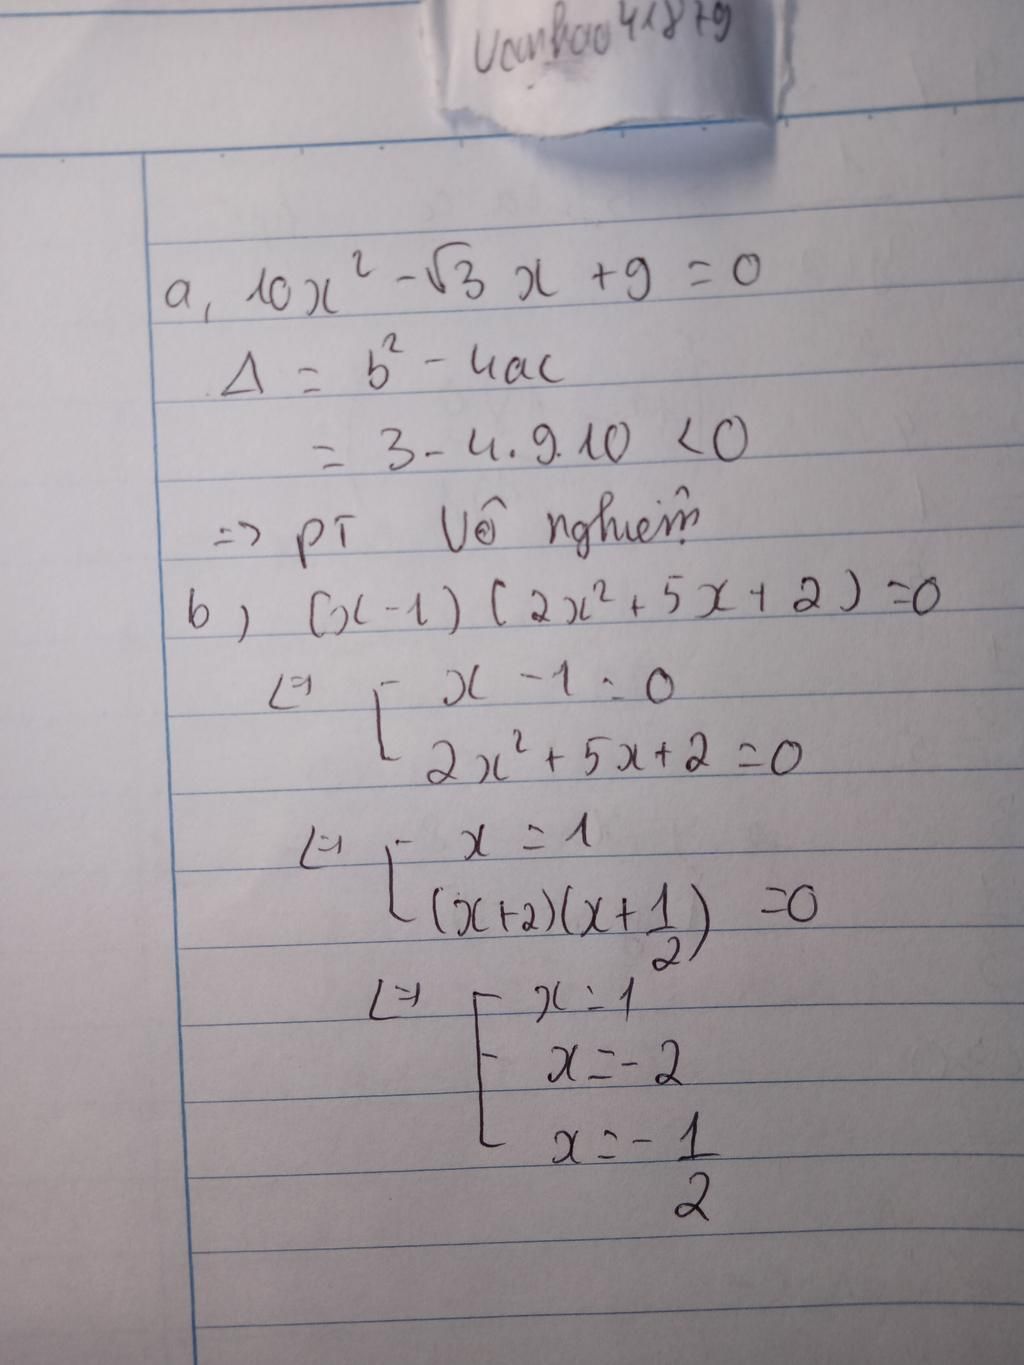 vanhao41879
a, 10x² - √3 x + 9 = 0
Δ = b² - 4ac
= 3 - 4.9.10 < 0
=> PT Vô nghiệm
b) (x-1)(2x²+5x+2)=0
<=> [ x - 1 = 0
2x² + 5x + 2 = 0
<=> [ x = 1
(x+2)(x+1/2) = 0
<=> [ x = 1
x = -2
x = -1/2